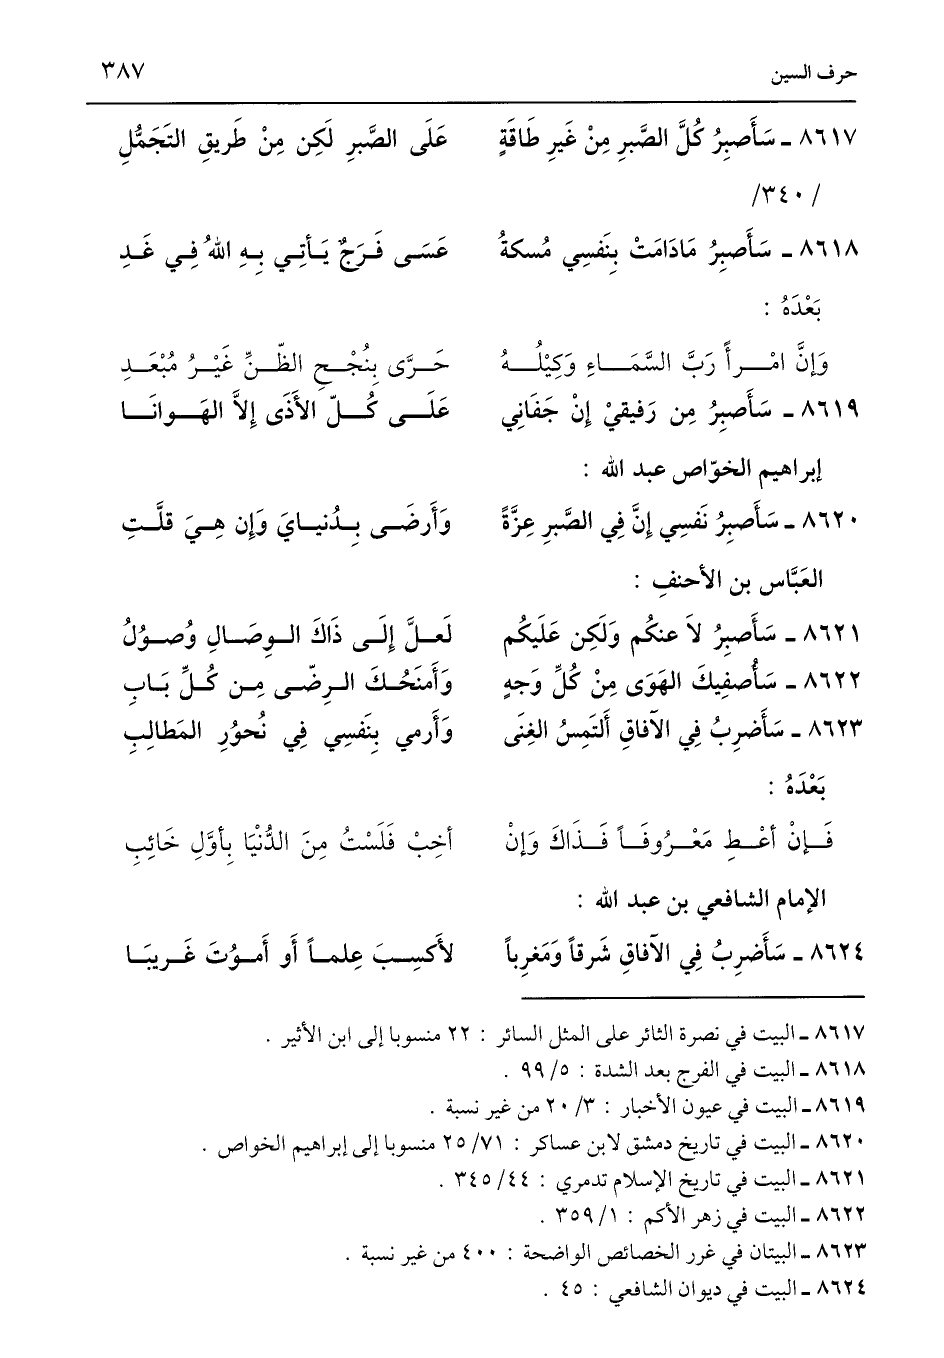 حرف السين ٣٨٧
٨٦١٧ ـ سَأَصبِرُ كُلَّ الصَّبرِ مِنْ غَيرِ طَاقَةٍ عَلَى الصَّبرِ لَكِن مِنْ طَريقِ التَجَمُّلِ
/٣٤٠/
٨٦١٨ ـ سَأَصبِرُ مَادَامَتْ بِنَفسِي مُسكةُ عَسَى فَرَجٌ يَأتِي بِهِ اللهُ فِي غَدِ
بَعْدَهُ :
وَإِنَّ امْرأً رَبَّ السَّمَاءِ وَكِيْلُهُ حَرَّى بِنُجْحِ الظّنِّ غَيْرُ مُبْعَدِ
٨٦١٩ ـ سَأَصبِرُ مِن رَفيقيْ إِنْ جَفَانِي عَلَى كُلّ الأَذَى إِلاَّ الهَوانَا
إبراهيم الخوّاص عبد الله :
٨٦٢٠ ـ سَأَصبِرُ نَفسِي إنَّ فِي الصَّبرِ عِزَّةً وَأَرضَى بِدُنيايَ وَإِن هِيَ قلَّتِ
العَبَّاس بن الأحنفِ :
٨٦٢١ ـ سَأَصبِرُ لاَ عنكُم وَلَكِن عَلَيكُم لَعلَّ إِلَى ذَاكَ الوِصَالِ وُصوُلُ
٨٦٢٢ ـ سَأُصفِيكَ الهَوَى مِنْ كُلِّ وَجهٍ وَأَمنَحُكَ الرِضّى مِن كُلِّ بَابِ
٨٦٢٣ ـ سَأَضرِبُ فِي الآفاقِ أَلتَمِسُ الغِنَى وَأَرمي بِنَفسِي فِي نُحوُرِ المَطالِبِ
بَعْدَهُ :
فَإِنْ أعْطِ مَعْرُوفَاً فَذَاكَ وَإِنْ أخِبْ فَلَسْتُ مِنَ الدُّنْيَا بِأوَّلِ خَائِبِ
الإمام الشافعي بن عبد الله :
٨٦٢٤ ـ سَأَضرِبُ فِي الآفاقِ شَرقاً وَمَغرِباً لأَكسِبَ عِلماً أَو أَموُتَ غَريبَا
٨٦١٧ ـ البيت في نصرة الثائر على المثل السائر : ٢٢ منسوبا إلى ابن الأثير .
٨٦١٨ ـ البيت في الفرج بعد الشدة : ٥/ ٩٩ .
٨٦١٩ ـ البيت في عيون الأخبار : ٣/ ٢٠ من غير نسبة .
٨٦٢٠ ـ البيت في تاريخ دمشق لابن عساكر : ٧١/ ٢٥ منسوبا إلى إبراهيم الخواص .
٨٦٢١ ـ البيت في تاريخ الإسلام تدمري : ٤٤/ ٣٤٥ .
٨٦٢٢ ـ البيت في زهر الأكم : ١/ ٣٥٩ .
٨٦٢٣ ـ البيتان في غرر الخصائص الواضحة : ٤٠٠ من غير نسبة .
٨٦٢٤ ـ البيت في ديوان الشافعي : ٤٥ .